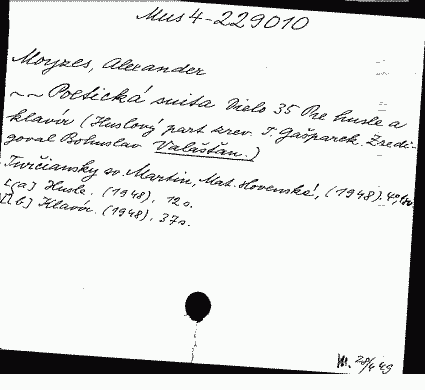 Mus 4-229010
Moyzes, Alexander
~~ Poetická suita Dielo 35 Pre husle a
klavír (Huslový part zrev. T. Gašparek. Zredi-
goval Bohuslav Valaštan.)
Turčiansky sv. Martin, Mat. slovenská, (1948). 4°,
[(a] Husle. (1948), 12 s.
[(b] Klavír. (1948), 37 s.
M. 28/4 49